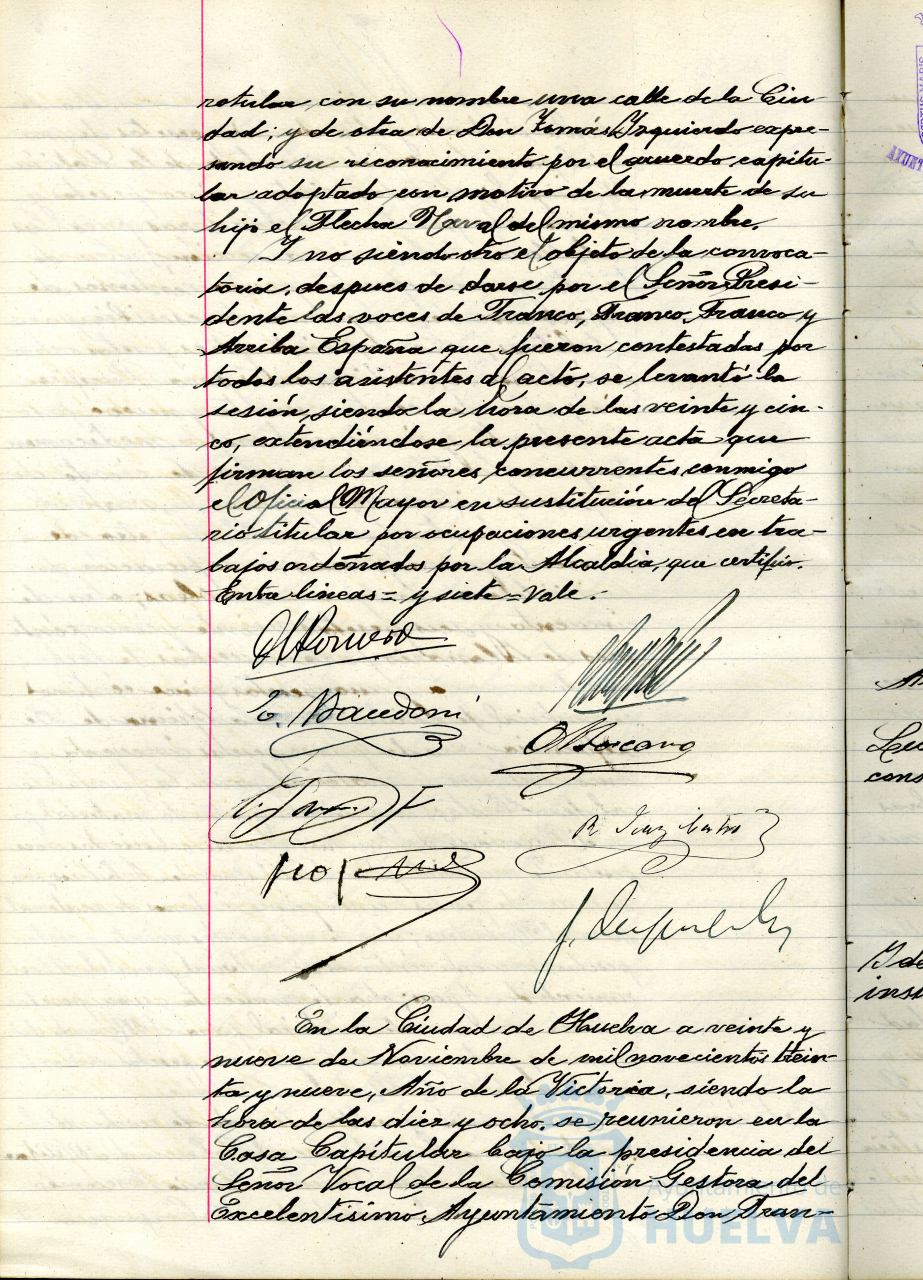 rotular, con su nombre una calle de la Ciu-
dad; y de otra de Don Tomás Izquierdo expre-
sando su reconocimiento por el acuerdo capitu-
lar adoptado con motivo de la muerte de su
hijo el Flecha Naval del mismo nombre.
Y no siendo otro el objeto de la convoca-
toria, despues de darse por el Señor Presi-
dente las voces de Franco, Franco, Franco y
Arriba España que fueron contestadas por
todos los asistentes al acto, se levantó la
sesión, siendo la hora de las veinte y cin-
co, extendiéndose la presente acta que
firman los señores concurrentes conmigo
el Oficial Mayor en sustitución del Secreta-
rio titular por ocupaciones urgentes en tra-
bajos ordenados por la Alcaldia, que certifico.
Entre lineas = y siete = Vale.
Romero
En la Ciudad de Huelva a veinte y
nueve de Noviembre de mil novecientos trein-
ta y nueve, Año de la Victoria, siendo la
hora de las diez y ocho, se reunieron en la
Casa Capitular bajo la presidencia del
Señor Vocal de la Comisión Gestora del
Excelentisimo Ayuntamiento Don Fran-
Ayuntamiento de
HUELVA
cons